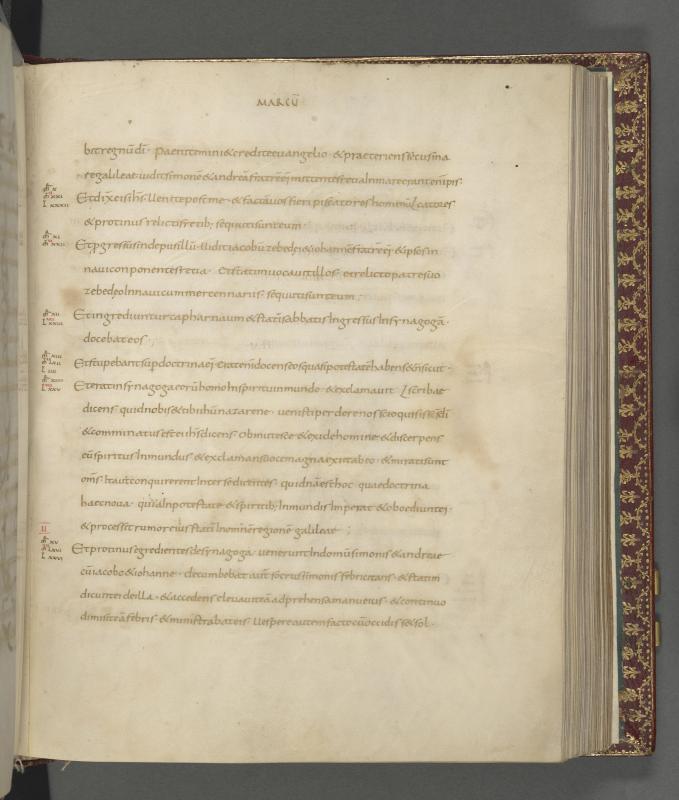 MARCŪ
bit regnū dī · Paenitemini & credite euangelio · & praeteriens secus ma
re galileae · uidit simonē & andreā fratrē ei mittentes retia In mare · erant enī pis
Et dix eis ihs · Uenite post me · & faciā uos fieri piscatores hominū
& protinus relictis retib; secuti sunt eum ·
Et pgressus inde pusillū · Uidit iacobū zebedei & iohannē fratrē ei & ipsos In
naui conponentes retia · Et statim uocauit illos · et relicto patre suo
zebedeo In naui cum mercennariis · secuti sunt eum ;
Et ingrediuntur capharnaum & statī sabbatis Ingressus In synagogā ·
docebat eos ·
Et stupebant sup doctrina ei · Erat enī docens eos quasi potestatē habens & ñ sicut ·
Et erat in synagoga eorū homo In spiritu inmundo · & exclamauit scribae
dicens · quid nobis & tibi ihū nazarene · uenisti perdere nos scio qui sis scs dī
& comminatus est ei ihs dicens · Obmutesce · & exi de homine · & discerpens
eū spiritus Inmundus · & exclamans uoce magna exiit ab eo · & mirati sunt
oms · Ita ut conquirerent Inter se dicentes · quidnā est hoc · quae doctrina
haec noua · quia In potestate & spiritib; Inmundis Imperat & oboediunt ei ·
& processit rumor eius statī In omnē regionē galileae ;
II
Et protinus egredientes de synagoga · uenerunt In domū simonis & andreae
cū iacobo & iohanne · decumbebat aut socrus simonis febricitans · & statim
dicunt ei de illa · & accedens eleuauit eā adprehensa manu eius · & continuo
dimisit eā febris · & ministrabat eis · Uespere autem facto cū occidisset sol ·